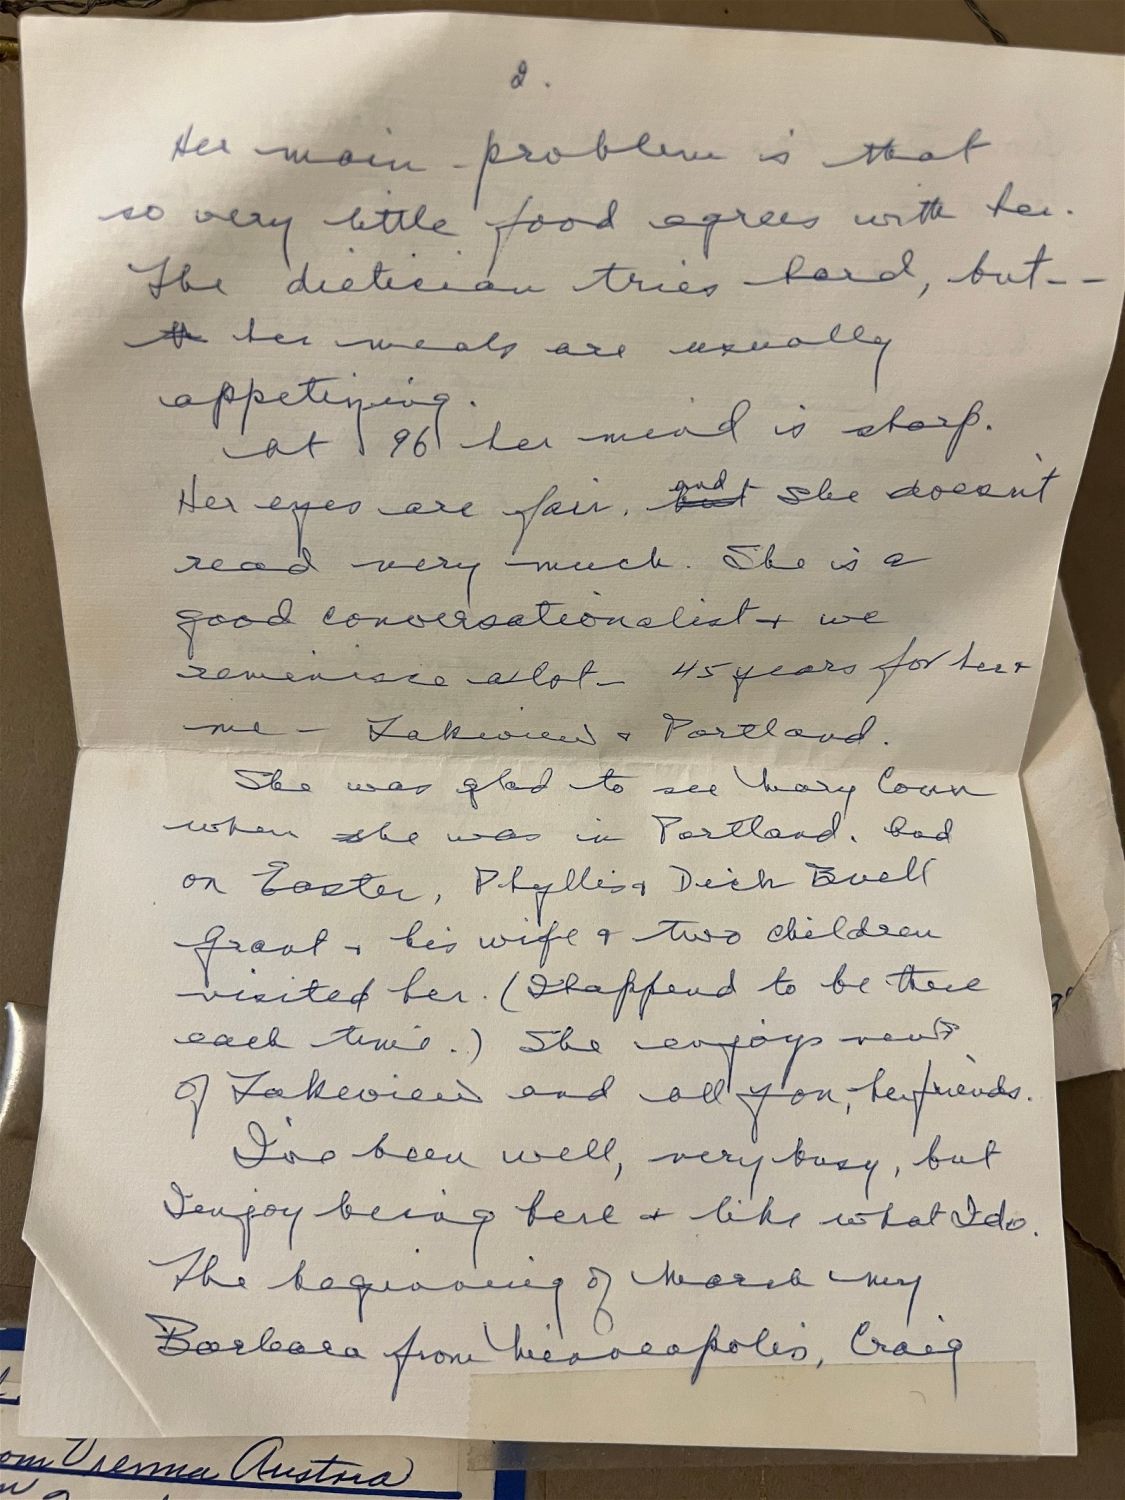 2.
Her main problem is that
so very little food agrees with her.
The dietician tries hard, but--
her meals are usually
appetizing.
At 96 her mind is sharp.
Her eyes are fair, and she doesn't
read very much. She is a
good conversationalist + we
reminisce alot - 45 years for her +
me - Lakeview + Portland.
She was glad to see Mary Conn
when she was in Portland. And
on Easter, Phyllis + Dick Buell
Grant + his wife + two children
visited her. (I happend to be there
each time.) She enjoys news
of Lakeview and all you, her friends.
I've been well, very busy, but
I enjoy being here + like what I do.
The beginning of March my
Barbara from Minneapolis, Craig
om Vienna Austria